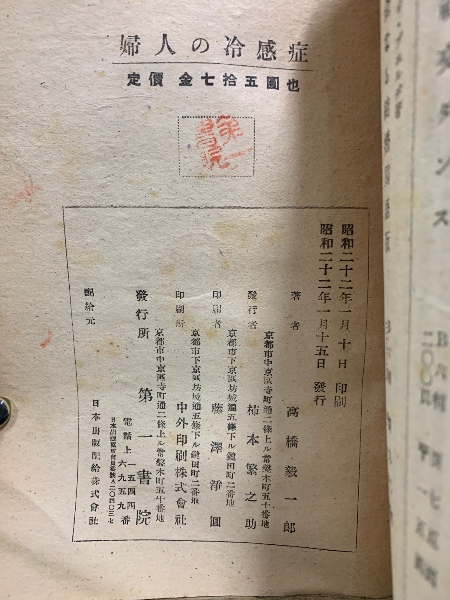 婦人の冷感症
定價 金七拾五圓也
第一書院
昭和二十二年一月十日 印刷
昭和二十二年一月十五日 發行
著者 高橋毅一郎
京都市中京區寺町通二條上ル常盤木町五十番地
發行者 柿本繁之助
京都市下京區坊城通五條下ル鍵田町二番地
印刷者 藤澤淨圓
京都市下京區坊城通五條下ル鍵田町二番地
印刷所 中外印刷株式會社
京都市中京區寺町通二條上ル常盤木町五十番地
發行所 第一書院
電話上 一五四四番
六九五九番
配給元 日本出版配給株式會社